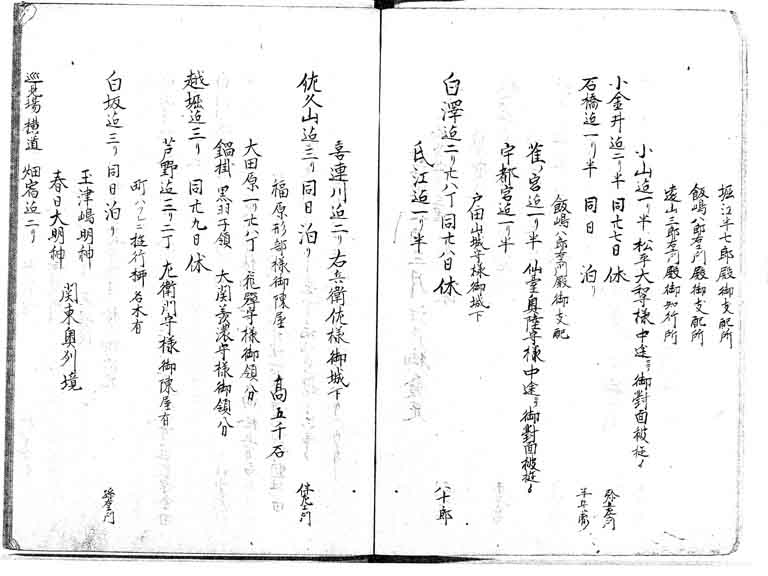 堀江半七郎殿御支配所
飯嶋八郎右衛門殿御支配所
遠山三郎右衛門殿御知行所
小山迠一リ半 松平大和守様中途ニ而御對面被遊候
小金井迠二リ半 同廿七日 休
石橋迠一リ半 同日 泊リ
飯嶋八郎右衛門殿御支配
雀ノ宮迠一リ半 仙臺奥陸守様中途ニ而御對面被遊候
宇都宮迠一リ半
戸田山城守様御城下
白澤迠二リ廿八丁 同廿八日 休 八十郎
氏江迠一リ半
喜連川迠二リ 右兵衛佐様御城下
佐久山迠三リ 同日 泊リ
福原形部様御陳屋 高五千石
大田原一リ廿八丁 飛騨守様御領分
鍋掛 黒羽子領 大関美濃守様御領分
越堀迠三リ 同廿九日 休
芦野迠三リ二丁 左衛門守様御陳屋有
町ハツレニ遊行柳名木有
白坂迠三リ 同日 泊リ
玉津嶋明神
春日大明神 関東奥列境
巡見場横道 畑宿迠二リ